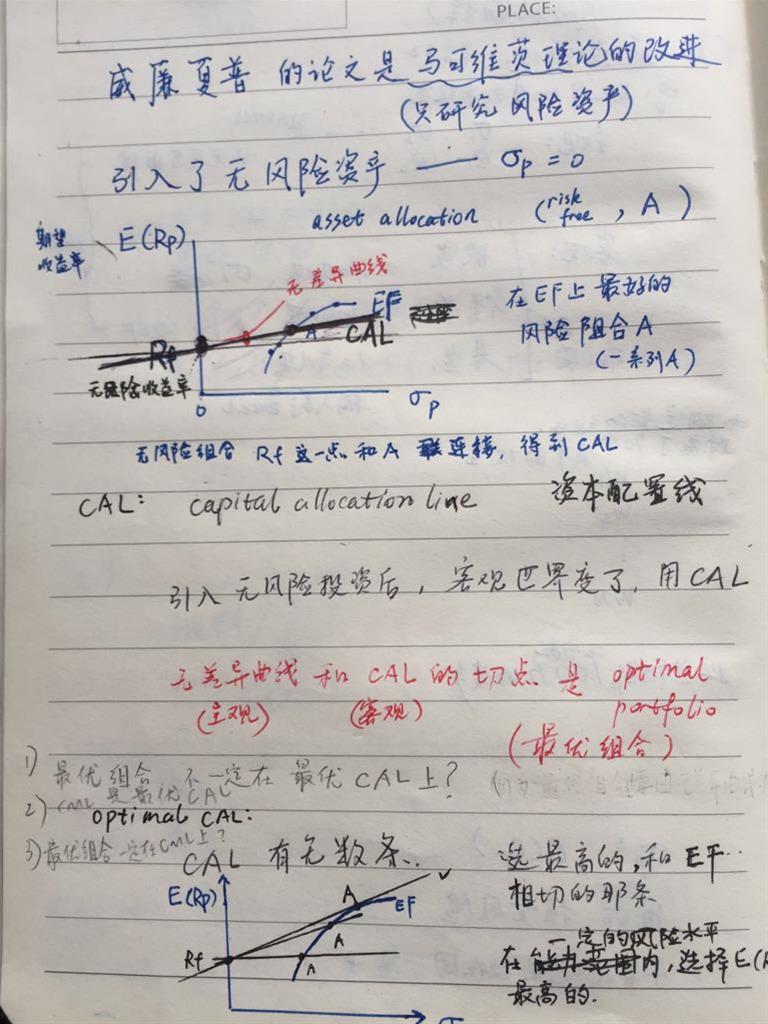 PLACE:
威廉夏普 的论文是马可维茨理论的改进
(只研究风险资产)
引入了无风险资产 —— σp = 0
asset allocation (risk free, A)
期望收益率
E(Rp)
无差异曲线
EF
A
CAL
Rf
无风险收益率
0
σp
在EF上最好的
风险组合A
(一系列A)
无风险组合 Rf 这一点和A 连接, 得到CAL
CAL: capital allocation line 资本配置线
引入无风险投资后, 客观世界变了, 用CAL
无差异曲线 和 CAL 的切点是 optimal portfolio
(主观) (客观) (最优组合)
1) 最优组合 不一定在最优CAL上?
2) CML是最优CAL
optimal CAL:
3) 最优组合一定在CML上?
CAL 有无数条..
选最高的, 和EF..
相切的那条
E(Rp)
A
EF
A
Rf
A
一定的风险水平
在 内, 选择E(R
最高的.